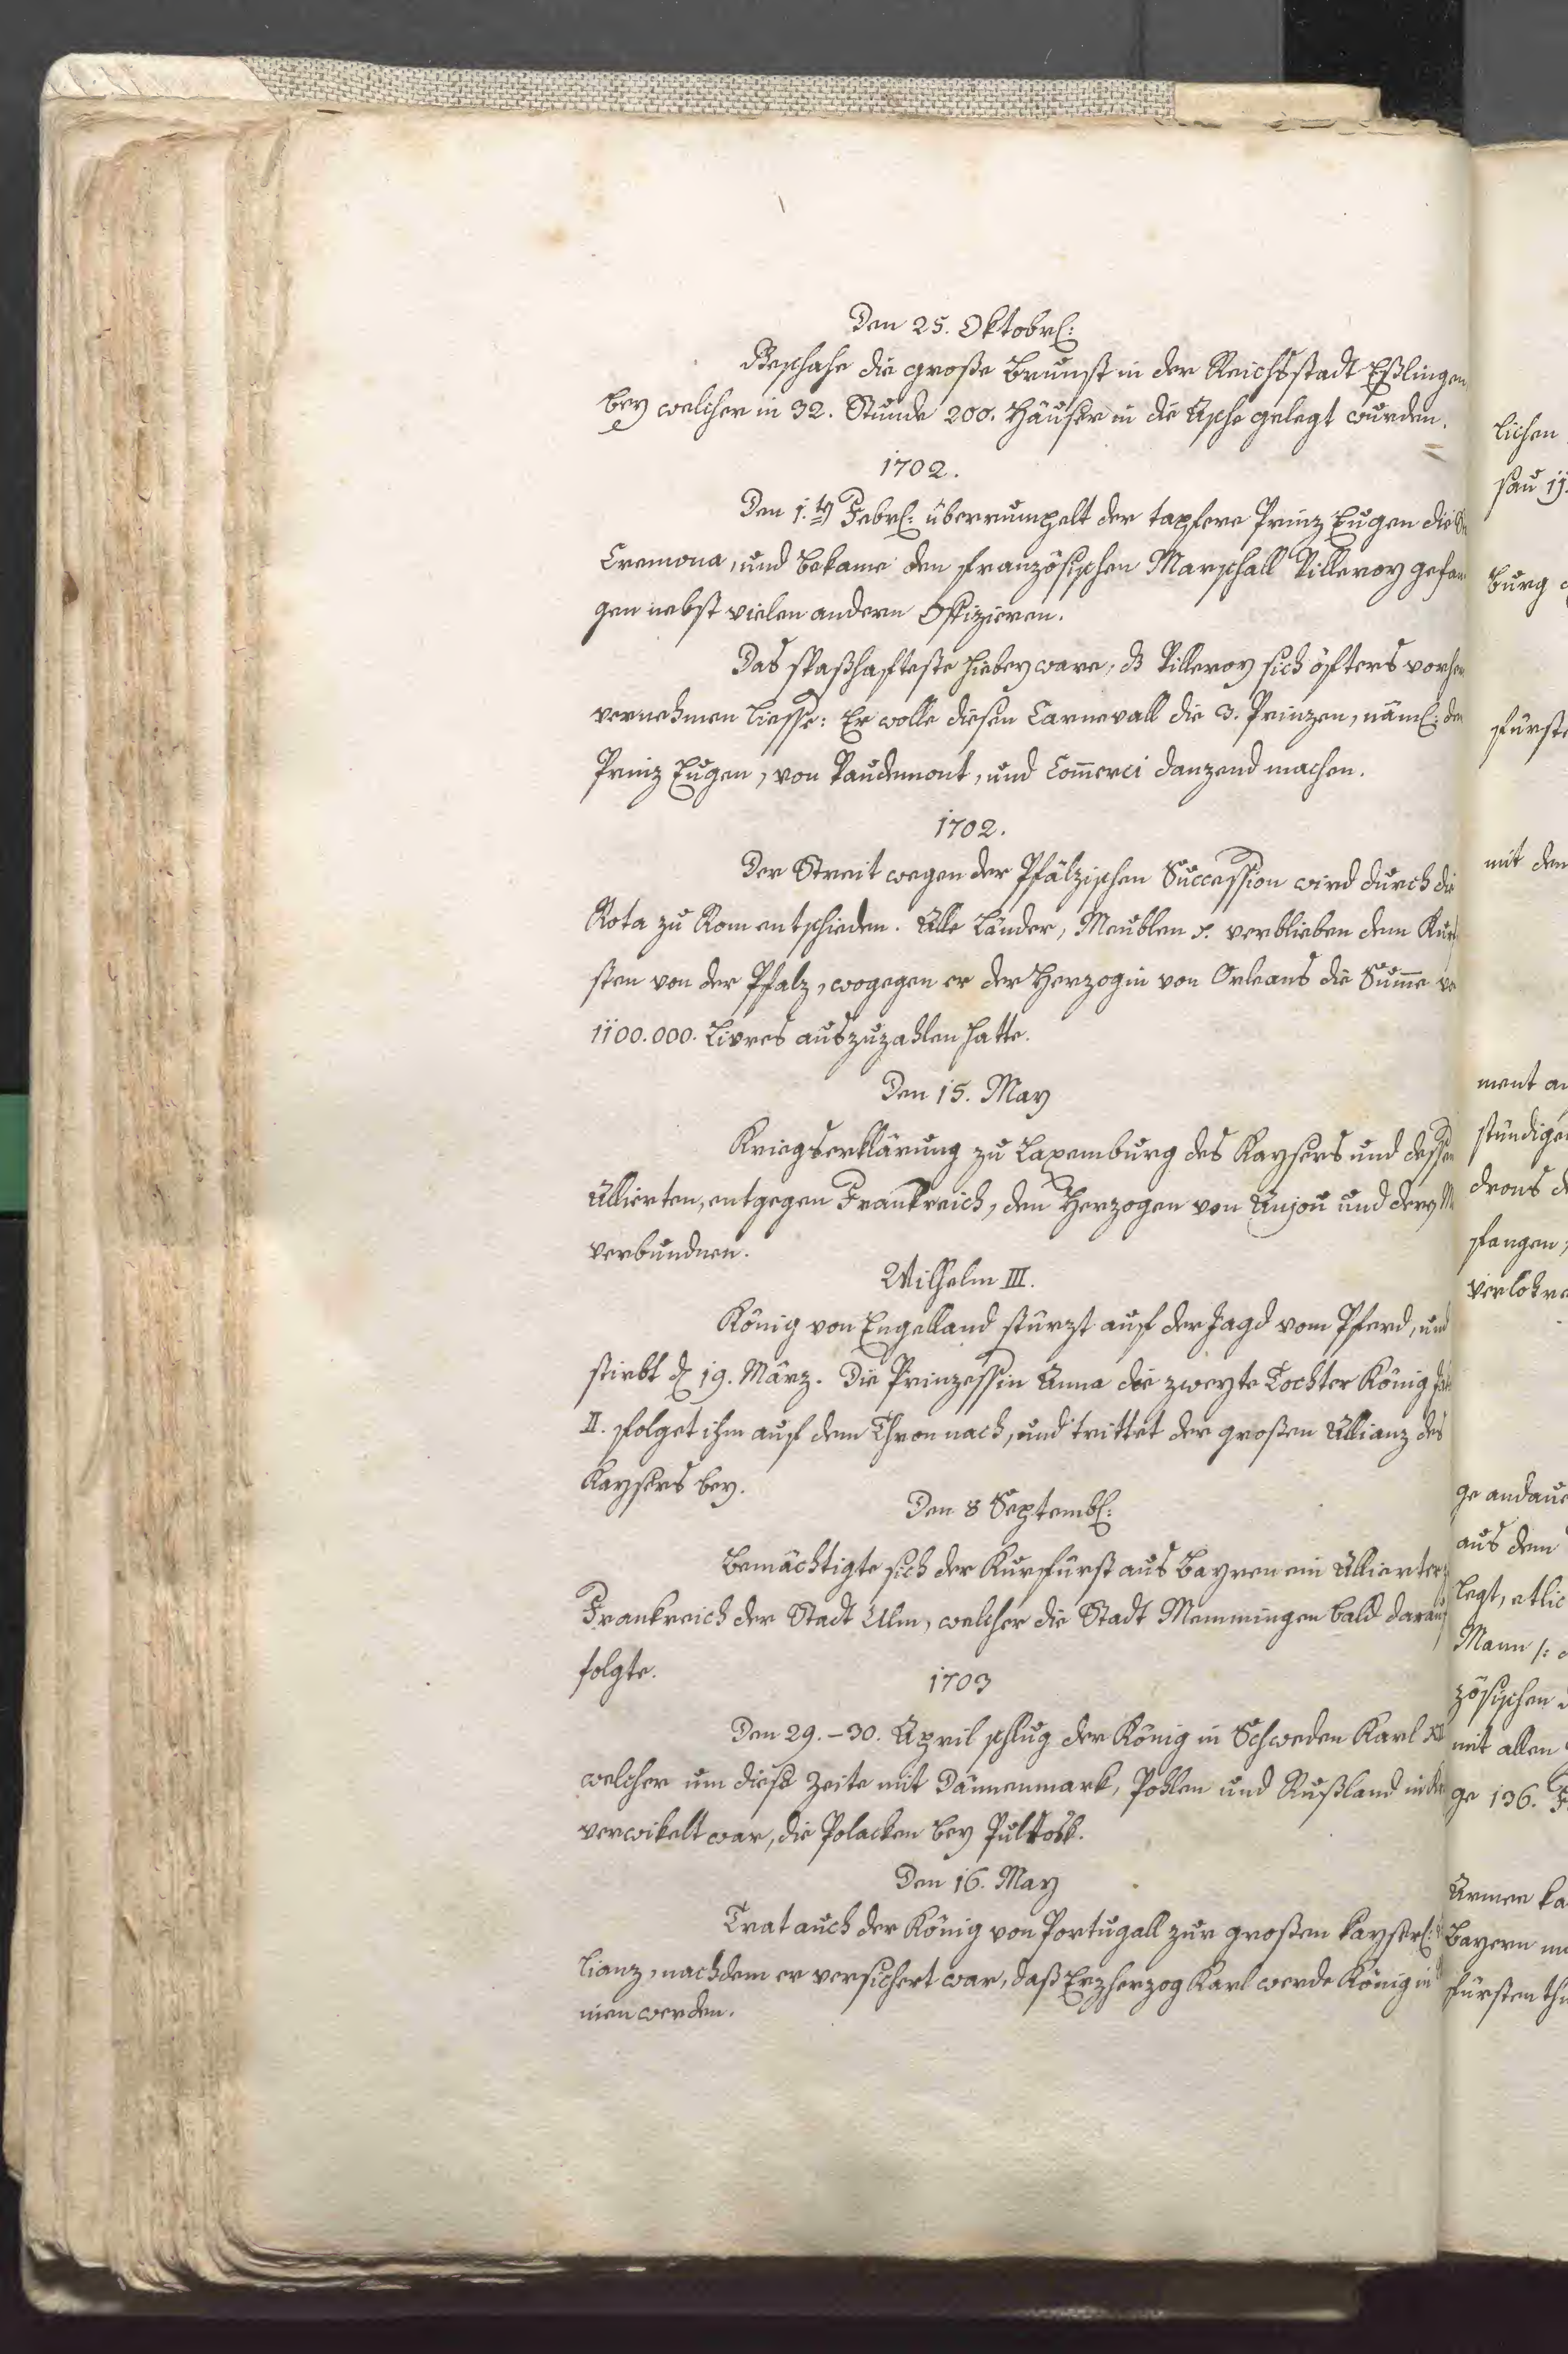 Den 25. Oktobrl:
Geschahe die große Brunst in der Reichsstadt Eßlingen
bey welcher in 32. Stunde 200. Häuser in die Asche gelegt wurden.
1702.
Den 1.ten Febrl: überrumpelt der tapfere Prinz Eugen die
Cremona, und bekame den französischen Marschall Villeroy gefan
gen nebst vielen andern Offizieren.
Das spaßhafteste hiebey ware, dß Villeroy sich öfters vorher
vernehmen liesse: Er wolle diesen Carnevall die 3. Prinzen, näml: den
Prinz Eugen, von Vaudemont, und Com̅erci danzend machen.
1702.
Der Streit wegen der Pfälzischen Succession wird durch die
Rota zu Rom entschieden. Alle Länder, Meublen verblieben dem Kurf
sten von der Pfalz, wogegen er der Herzogin von Orleans die Sum̅e
1100.000. Livres auszuzahlen hatte.
Den 15. May
Kriegserklärung zu Laxemburg des Kaysers und dessen
Allierten, entgegen Frankreich, den Herzogen von Anjou und
verbundnen.
Wilhelm III.
König von Engelland stürzt auf der Jagd vom Pferd, und
stirbt d 19. März. Die Prinzessin Anna die zweyte Tochter König
II. folget ihm auf dem Thron nach, und trittet der großen Allianz des
Kaysers bey.
Den 8 Septembl:
Bemächtigte sich der Kurfürst aus Bayren ein Allierter
Frankreich der Stadt Ulm, welcher die Stadt Memmingen bald darauf
folgte.
1703
Den 29.–30. April schlug der König in Schweden Karl XII
welcher um diese Zeite mit Dännenmark, Pohlen und Rußland in
verwikelt war, die Polacken bey Pultosk.
Den 16. May
Trat auch der König von Portugall zur großen kayserl:
lianz, nachdem er versichert war, daß Erzherzog Karl werde König in
nien werden.
lichen
sau
burg
fürst
mit den
ment
ständige
drons
fangen
verlohre
ge andaue
aus dem
legt, etlic
Mann
zösischen
mit allen
ge 136.
Armee ka
Bayern
fürsten